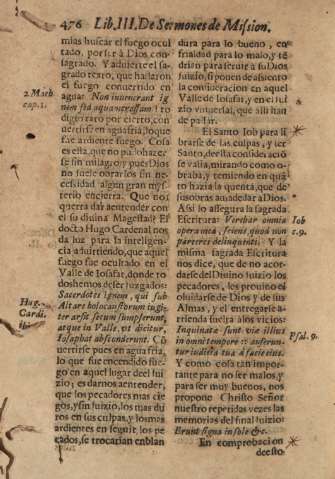 476 Lib.III. De Sermones de Mission.
mias buscar el fuego ocultado, por ser à Dios
sagrado. Y aduierte el sagrado texto, que hallaron
el fuego conuertido en
agua: Non inuenerunt ignem
2. Mach.
cap. 1.
digo raro por cierto, conuertirse en agua fria, lo que
fue ardiente fuego. Cosa
es esta, que no pa
se sin milagro; y pues Dios
no suele obrarlos sin necessidad algun gran mysterio encierra. Que nos
querrà dar à entender con
el su diuina Magestad? El
docto Hugo Cardenal nos
da luz para la inteligencia aduirtiendo, que aquel
fuego fue ocultado en el
Valle de Iosafat, donde todos hemos de ser juzgados:
Sacerdotes ignem, qui sub
Altare holocaustorum iugiter arsit secum sumpserunt,
atque in Valle, vt dicitur,
Iosaphat absconderunt.
Hug.
Cardi.
uertirse pues en agua fria,
lo que fue encendido fuego en aquel lugar de el juizio; es darnos à entender,
que los pecadores mas ciegos, y sin juizio, los mas duros en sus culpas, y los mas
ardientes en seguir los pecados, se trocarian en blandura para lo bueno, en
frialdad para lo malo, y tédrian para seruir à su Dios
juizio, si ponen de assiento
la consideracion en aquel
Valle de Iosafat, y en el juizio vniuersal, que alli han
de passar.
El Santo Iob para librarse de las culpas, y ser
Santo, de esta consideracion se valia, mirando como obraba, y temiendo en quãto hazia la quenta, que de
sus obras auia de dar à Dios.
Assi lo assegura la sagrada
Escritura: Verebar omnia
opera mea, sciens, quod non
parceres delinquenti.
Iob
c. 9.
Y la
misma sagrada Escritura
nos dize, que de no acordarse del Diuino Iuizio los
pecadores, les prouino el
oluidarse de Dios y de sus
Almas, y el entregarse à
rienda suelta à los vicios:
Inquinatæ sunt viæ illius
in omni tempore: auferuntur iudicia tua à facie eius.
Psal. 9.
Y como cosa tan importante para no ser malos, y
para ser muy buenos, nos
propone Christo Señor
nuestro repetidas vezes las
memorias del final Iuizio:
Erunt signa in sole &c.
En comprobacion
de esto